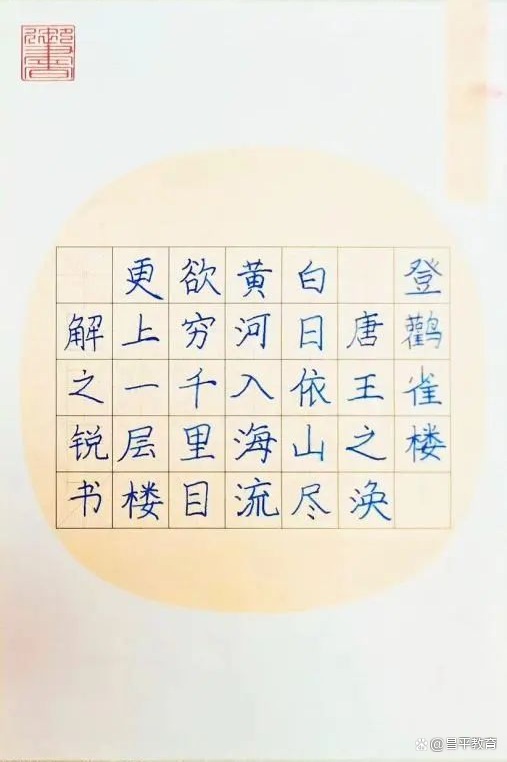 登鹳雀楼
唐王之涣
白日依山尽
黄河入海流
欲穷千里目
更上一层楼
解之锐书
@昌平教育